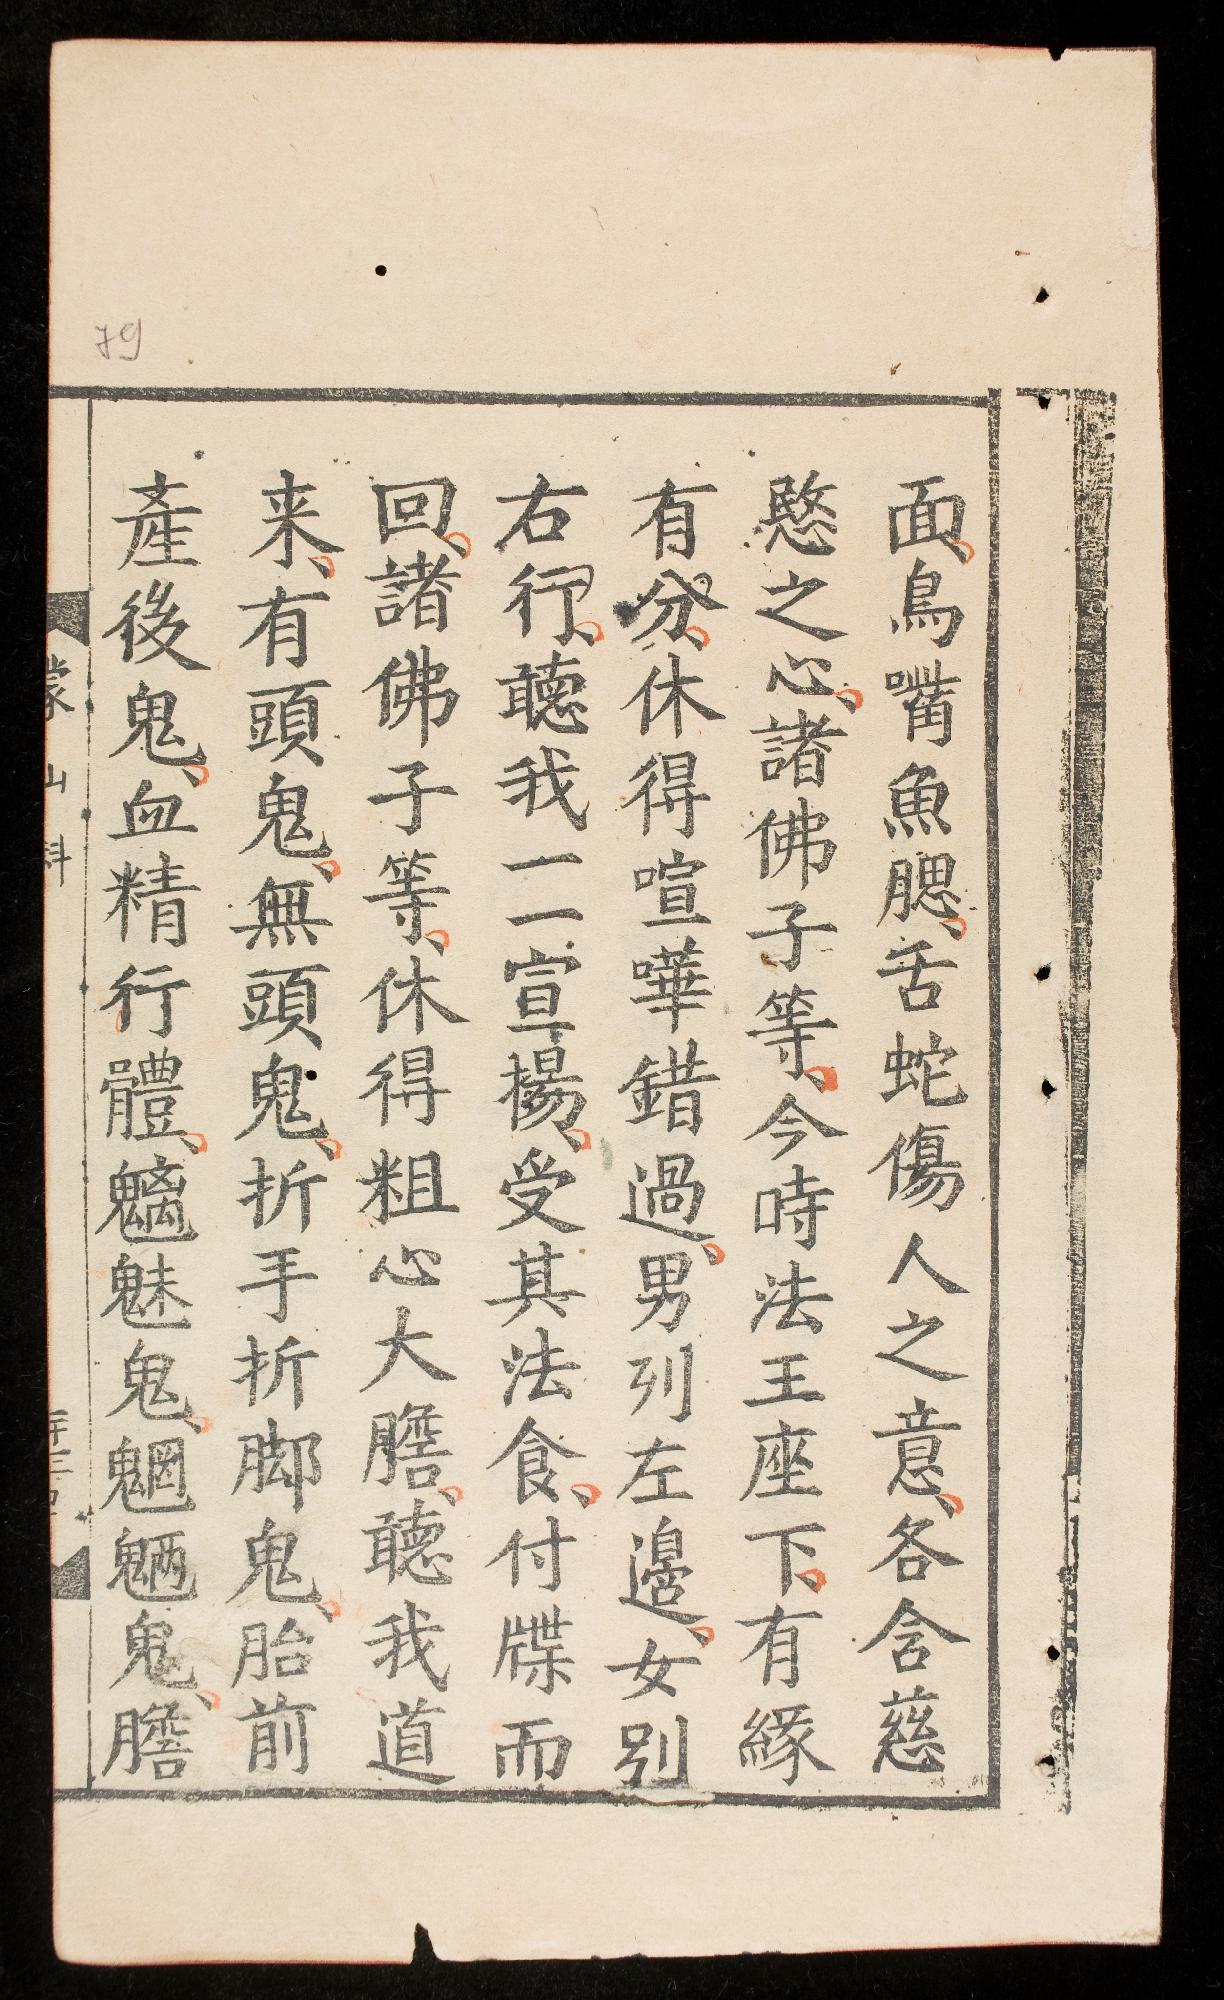 面鳥嘴魚腮舌蛇傷人之意各含慈
愍之心諸佛子等今時法王座下有緣
有分休得喧嘩錯過男列左邊女別
右行聽我一一宣揚受其法食付牒而
回諸佛子等休得粗心大膽聽我道
来有頭鬼無頭鬼折手折脚鬼胎前
產後鬼血精行體魑魅鬼魍魎鬼膽
蒙山科
79